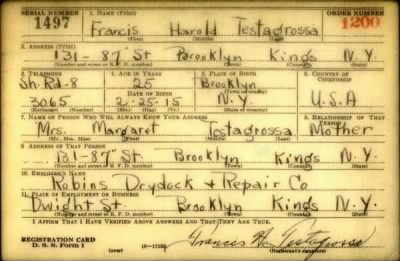 SERIAL NUMBER 1. NAME (Print) ORDER NUMBER
1497 Francis Harold Testagrossa 1200
(First) (Middle) (Last)
2. ADDRESS (Print)
131-87" St Brooklyn Kings N.Y.
(Number and street or R. F. D. number) (Town) (County) (State)
3. TELEPHONE 4. AGE IN YEARS 5. PLACE OF BIRTH 6. COUNTRY OF CITIZENSHIP
Sh. Rd-8 25 Brooklyn
DATE OF BIRTH
3065 2-25-15 N.Y. U.S.A
(Exchange) (Number) (Mo.) (Day) (Yr.) (State or country)
7. NAME OF PERSON WHO WILL ALWAYS KNOW YOUR ADDRESS 8. RELATIONSHIP OF THAT PERSON
Mrs. Margaret Testagrossa Mother
(Mr., Mrs., Miss) (First) (Middle) (Last)
9. ADDRESS OF THAT PERSON
131-87" St. Brooklyn Kings N.Y.
(Number and street or R. F. D. number) (Town) (County) (State)
10. EMPLOYER'S NAME
Robins Drydock & Repair Co
11. PLACE OF EMPLOYMENT OR BUSINESS
Dwight St. Brooklyn Kings N.Y.
(Number and street or R. F. D. number) (Town) (County) (State)
I AFFIRM THAT I HAVE VERIFIED ABOVE ANSWERS AND THAT THEY ARE TRUE.
REGISTRATION CARD
D. S. S. Form 1 (over) Francis H. Testagrossa
(Registrant's signature)